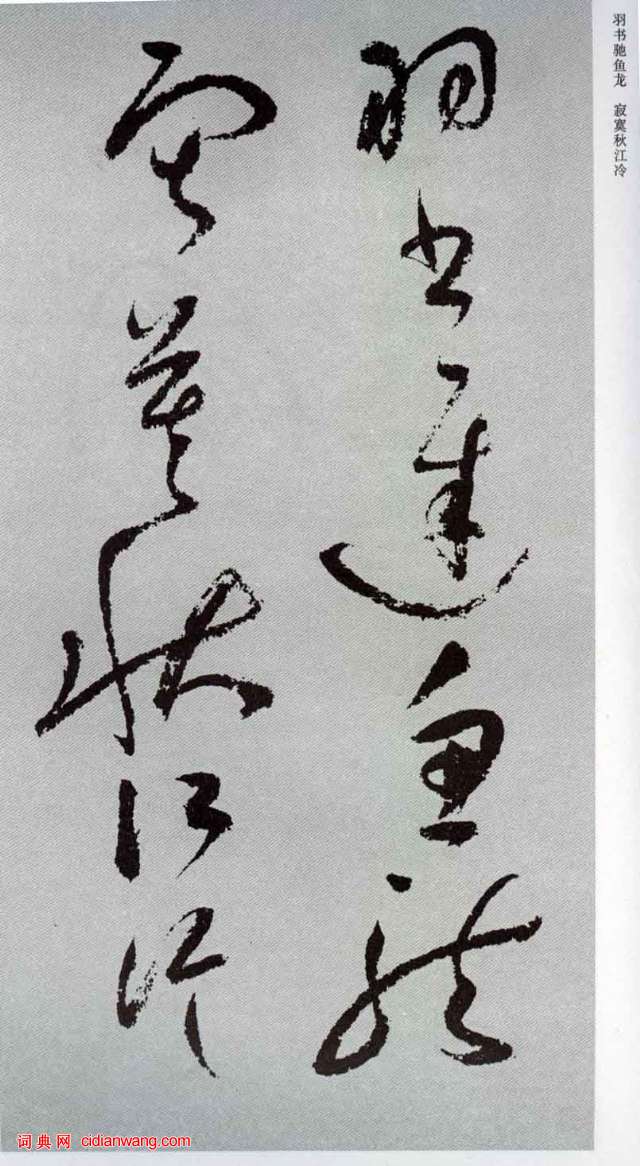 羽书驰鱼龙 寂寞秋江冷
羽書遲魚龍
寂寞秋江冷
词典网 cidianwang.com